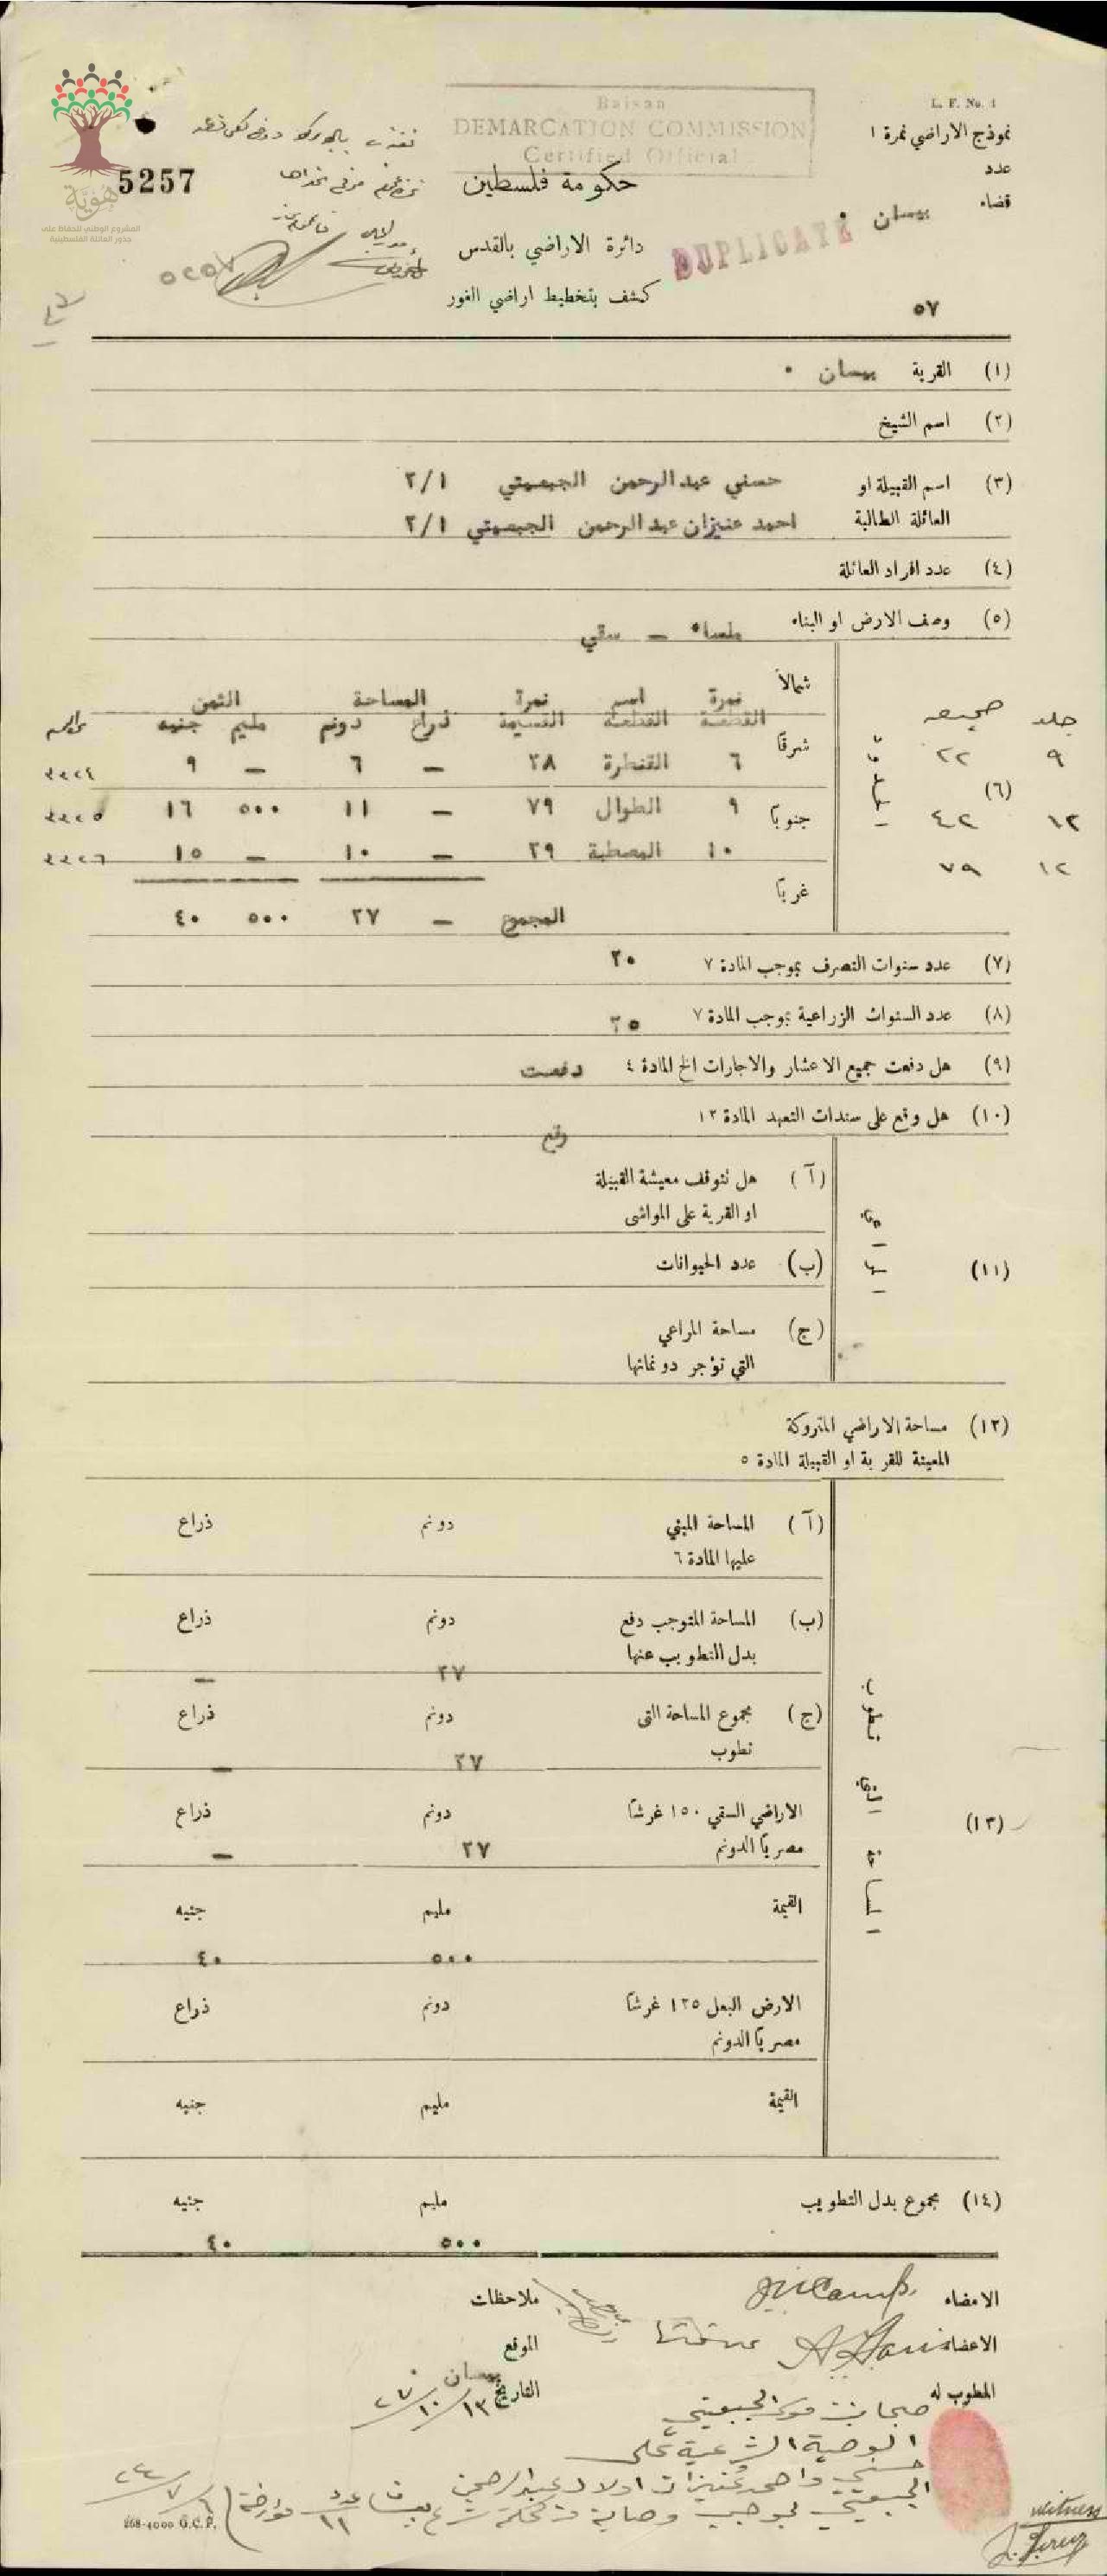 L. F. No. 1
نموذج الاراضي نمرة ١
عدد
قضاء بيسان
Baisan
DEMARCATION COMMISSION
Certified Official
حكومة فلسطين
دائرة الاراضي بالقدس
كشف بتخطيط اراضي الغور
DUPLICATE
٥٧
هوية
المشروع الوطني للحفاظ على
جذور العائلة الفلسطينية
5257
٥٢٥٧
(١) القرية بيسان
(٢) اسم الشيخ
(٣) اسم القبيلة او حسني عبدالرحمن الجبعيتي ٢/١
العائلة الطالبة احمد عنيزان عبدالرحمن الجبعيتي ٢/١
(٤) عدد افراد العائلة
(٥) وصف الارض او البناء ملساء — سقي
جلد صحيفه
(٦) الحدود
شمالاً
شرقاً
جنوباً
غرباً
نمرة القطعة اسم القطعة نمرة القسيمة المساحة ذراع دونم الثمن مليم جنيه
٩ ٢٢ ٦ القنطرة ٢٨ — ٦ — ٩
١٢ ٤٢ ٩ الطوال ٧٩ — ١١ ٥٠٠ ١٦
١٢ ٧٩ ١٠ المصطبة ٢٩ — ١٠ — ١٥
المجموع — ٢٧ ٥٠٠ ٤٠
(٧) عدد سنوات التصرف بموجب المادة ٧ ٢٠
(٨) عدد السنوات الزراعية بموجب المادة ٧ ٢٥
(٩) هل دفعت جميع الاعشار والاجارات الخ المادة ٤ دفعت
(١٠) هل وقع على سندات التعهد المادة ١٢ وقع
(١١)
(آ) هل تتوقف معيشة القبيلة
او القرية على المواشى
(ب) عدد الحيوانات
(ج) مساحة المراعي
التي تؤجر دونماتها
(١٢) مساحة الاراضي المتروكة
المعينة للقرية او القبيلة المادة ٥
(١٣) المساحة التي تطوب
(آ) المساحة المبني دونم ذراع
عليها المادة ٦
(ب) المساحة المتوجب دفع دونم ذراع
بدل التطويب عنها ٢٧ —
(ج) مجموع المساحة التى دونم ذراع
تطوب ٢٧ —
الاراضي السقي ١٥٠ غرشاً دونم ذراع
مصرياً الدونم ٢٧ —
القيمة مليم جنيه
٥٠٠ ٤٠
الارض البعل ١٢٥ غرشاً دونم ذراع
مصرياً الدونم
القيمة مليم جنيه
(١٤) مجموع بدل التطويب مليم جنيه
٥٠٠ ٤٠
الامضاء
الاعضاء
المطوب له
ملاحظات
الموقع بيسان
التاريخ ١٣/١٠/٢٧
الوصية الشرعية على
حسني واحمد عنيزان اولاد عبدالرحمن
الجبعيتي بموجب وصاية
witness
268-4000 G.C.P.